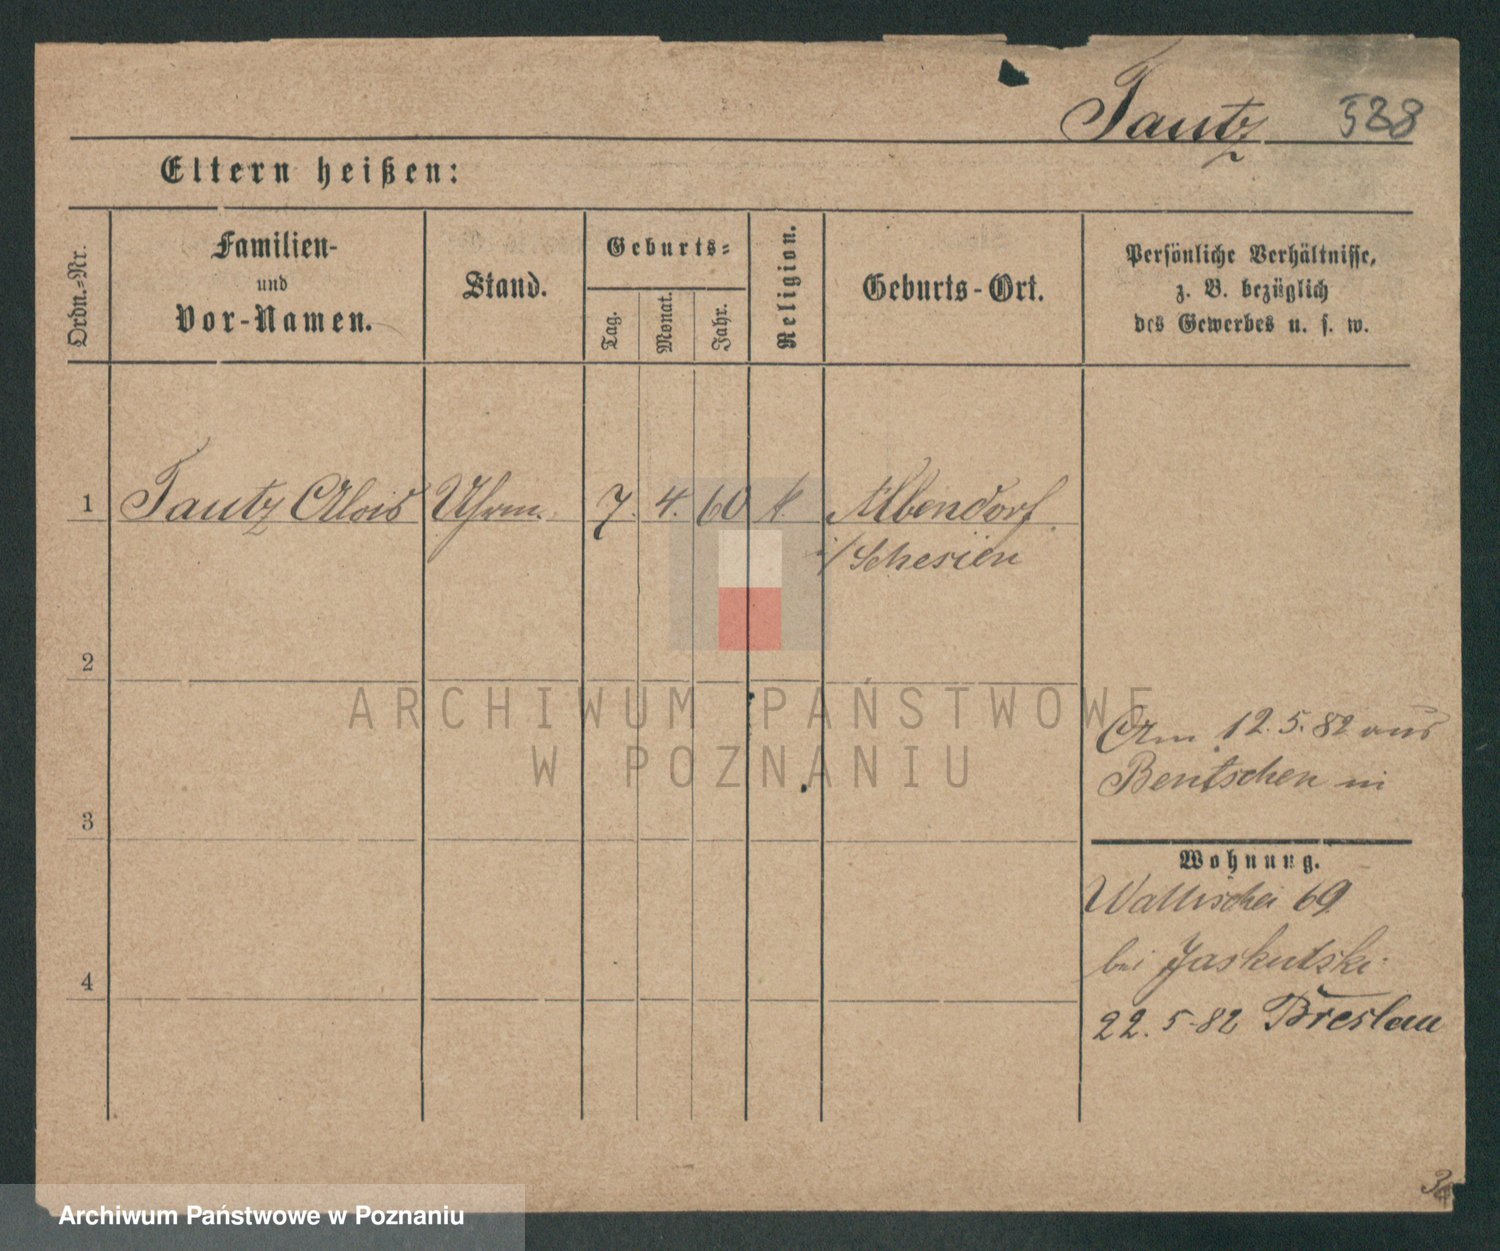 Tautz 588
Eltern heißen:
Ordn.-Nr.
Familien-
und
Vor-Namen.
Stand.
Geburts-
Tag.
Monat.
Jahr.
Religion.
Geburts-Ort.
Persönliche Verhältnisse,
z. B. bezüglich
des Gewerbes u. s. w.
1 Tautz Alois Uhrm. 7. 4. 60 k. Albendorf
i/Schesien
2
ARCHIWUM PAŃSTWOWE
W POZNANIU
Am 12.5.82 aus
Bentschen in
3
Wohnung.
Wallischei 69
bei Jaskutski.
4
22.5-82 Breslau
Archiwum Państwowe w Poznaniu